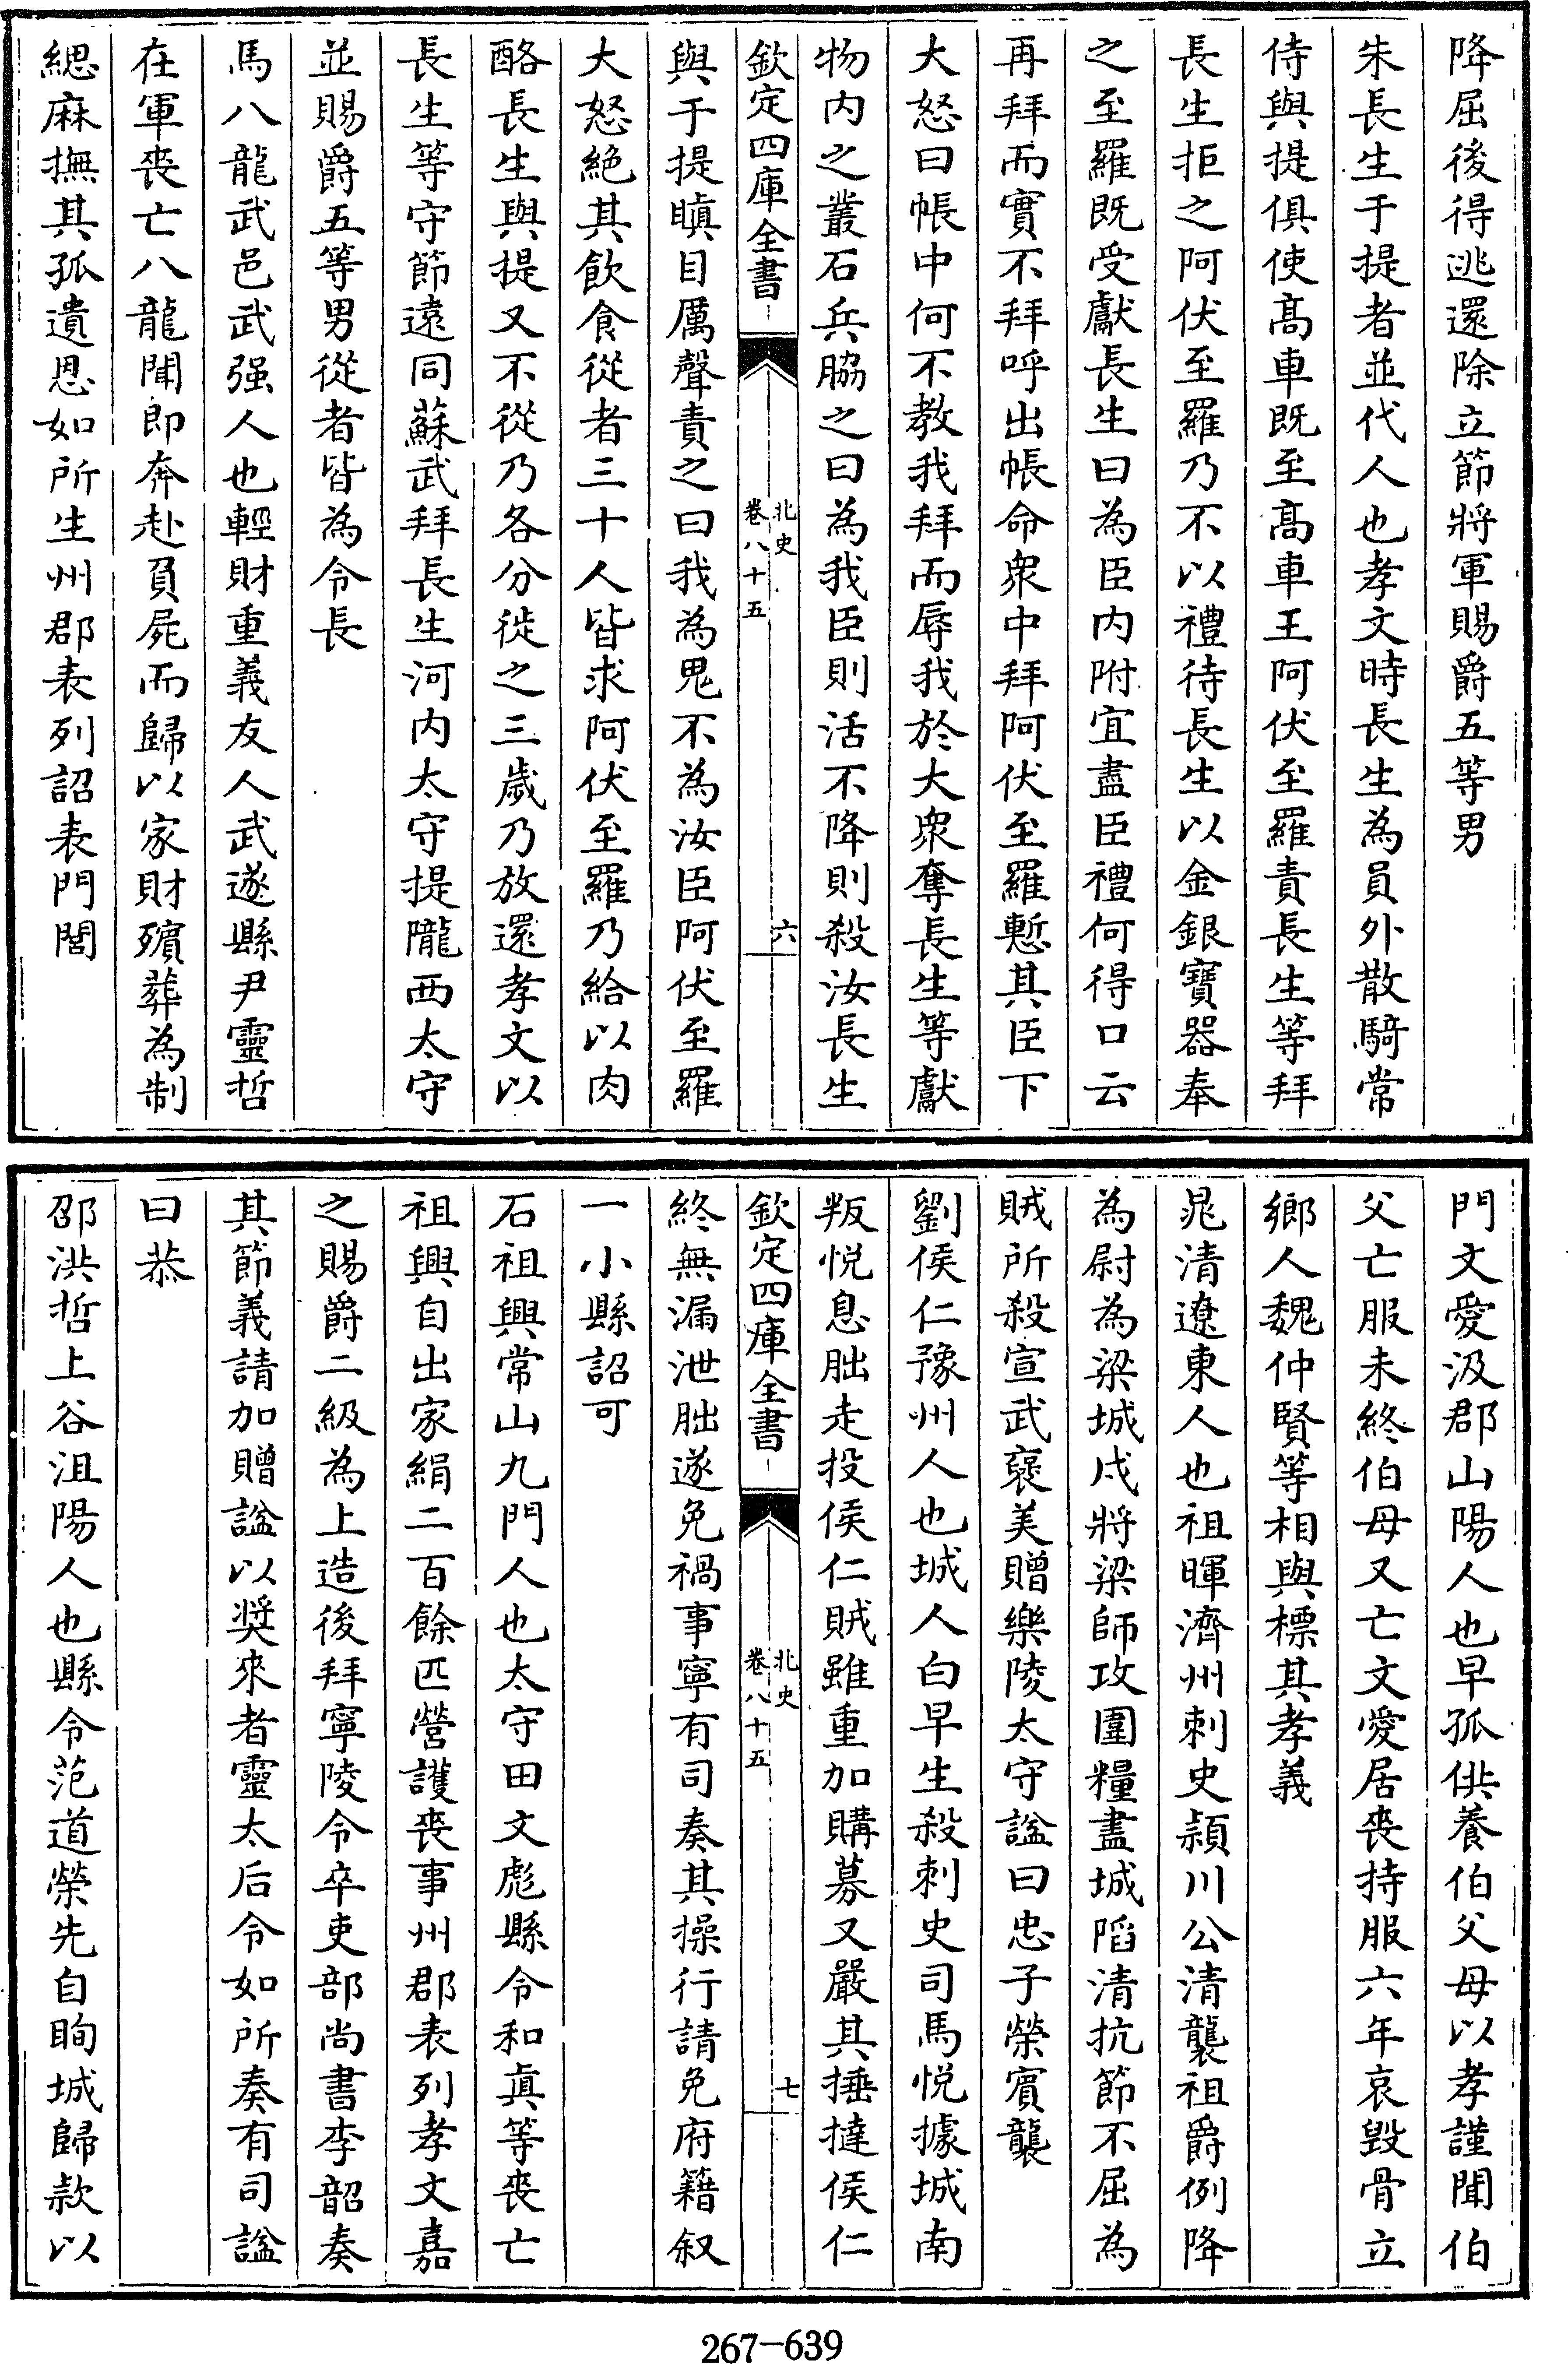 降屈後得逃還除立節將軍賜爵五等男
朱長生于提者並代人也孝文時長生為員外散騎常
侍與提俱使髙車既至髙車王阿伏至羅責長生等拜
長生拒之阿伏至羅乃不以禮待長生以金銀寶器奉
之至羅既受獻長生曰為臣内附宜盡臣禮何得口云
再拜而實不拜呼出帳命衆中拜阿伏至羅慙其臣下
大怒曰帳中何不教我拜而辱我於大衆奪長生等獻
物内之叢石兵脇之曰為我臣則活不降則殺汝長生
欽定四庫全書
北史
卷八十五
六
與于提瞋目厲聲責之曰我為鬼不為汝臣阿伏至羅
大怒絶其飲食從者三十人皆求阿伏至羅乃給以肉
酪長生與提又不從乃各分徙之三歲乃放還孝文以
長生等守節遠同蘇武拜長生河内太守提隴西太守
並賜爵五等男從者皆為令長
馬八龍武邑武强人也輕財重義友人武遂縣尹靈哲
在軍喪亡八龍聞即奔赴負屍而歸以家財殯葬為制
緦麻撫其孤遺恩如所生州郡表列詔表門閭
門文愛汲郡山陽人也早孤供養伯父母以孝謹聞伯
父亡服未終伯母又亡文愛居喪持服六年哀毁骨立
鄉人魏仲賢等相與標其孝義
晁清遼東人也祖暉濟州刺史潁川公清襲祖爵例降
為尉為梁城戍將梁師攻圍糧盡城陷清抗節不屈為
賊所殺宣武襃美贈樂陵太守諡曰忠子榮賓襲
劉侯仁豫州人也城人白早生殺刺史司馬悦據城南
叛悦息朏走投侯仁賊雖重加購募又嚴其捶撻侯仁
欽定四庫全書
北史
卷八十五
七
終無漏泄朏遂免禍事寧有司奏其操行請免府籍叙
一小縣詔可
石祖興常山九門人也太守田文彪縣令和真等喪亡
祖興自出家絹二百餘匹營護喪事州郡表列孝文嘉
之賜爵二級為上造後拜寧陵令卒吏部尚書李韶奏
其節義請加贈諡以奬來者靈太后令如所奏有司諡
曰恭
邵洪哲上谷沮陽人也縣令范道榮先自眴城歸款以
267-639